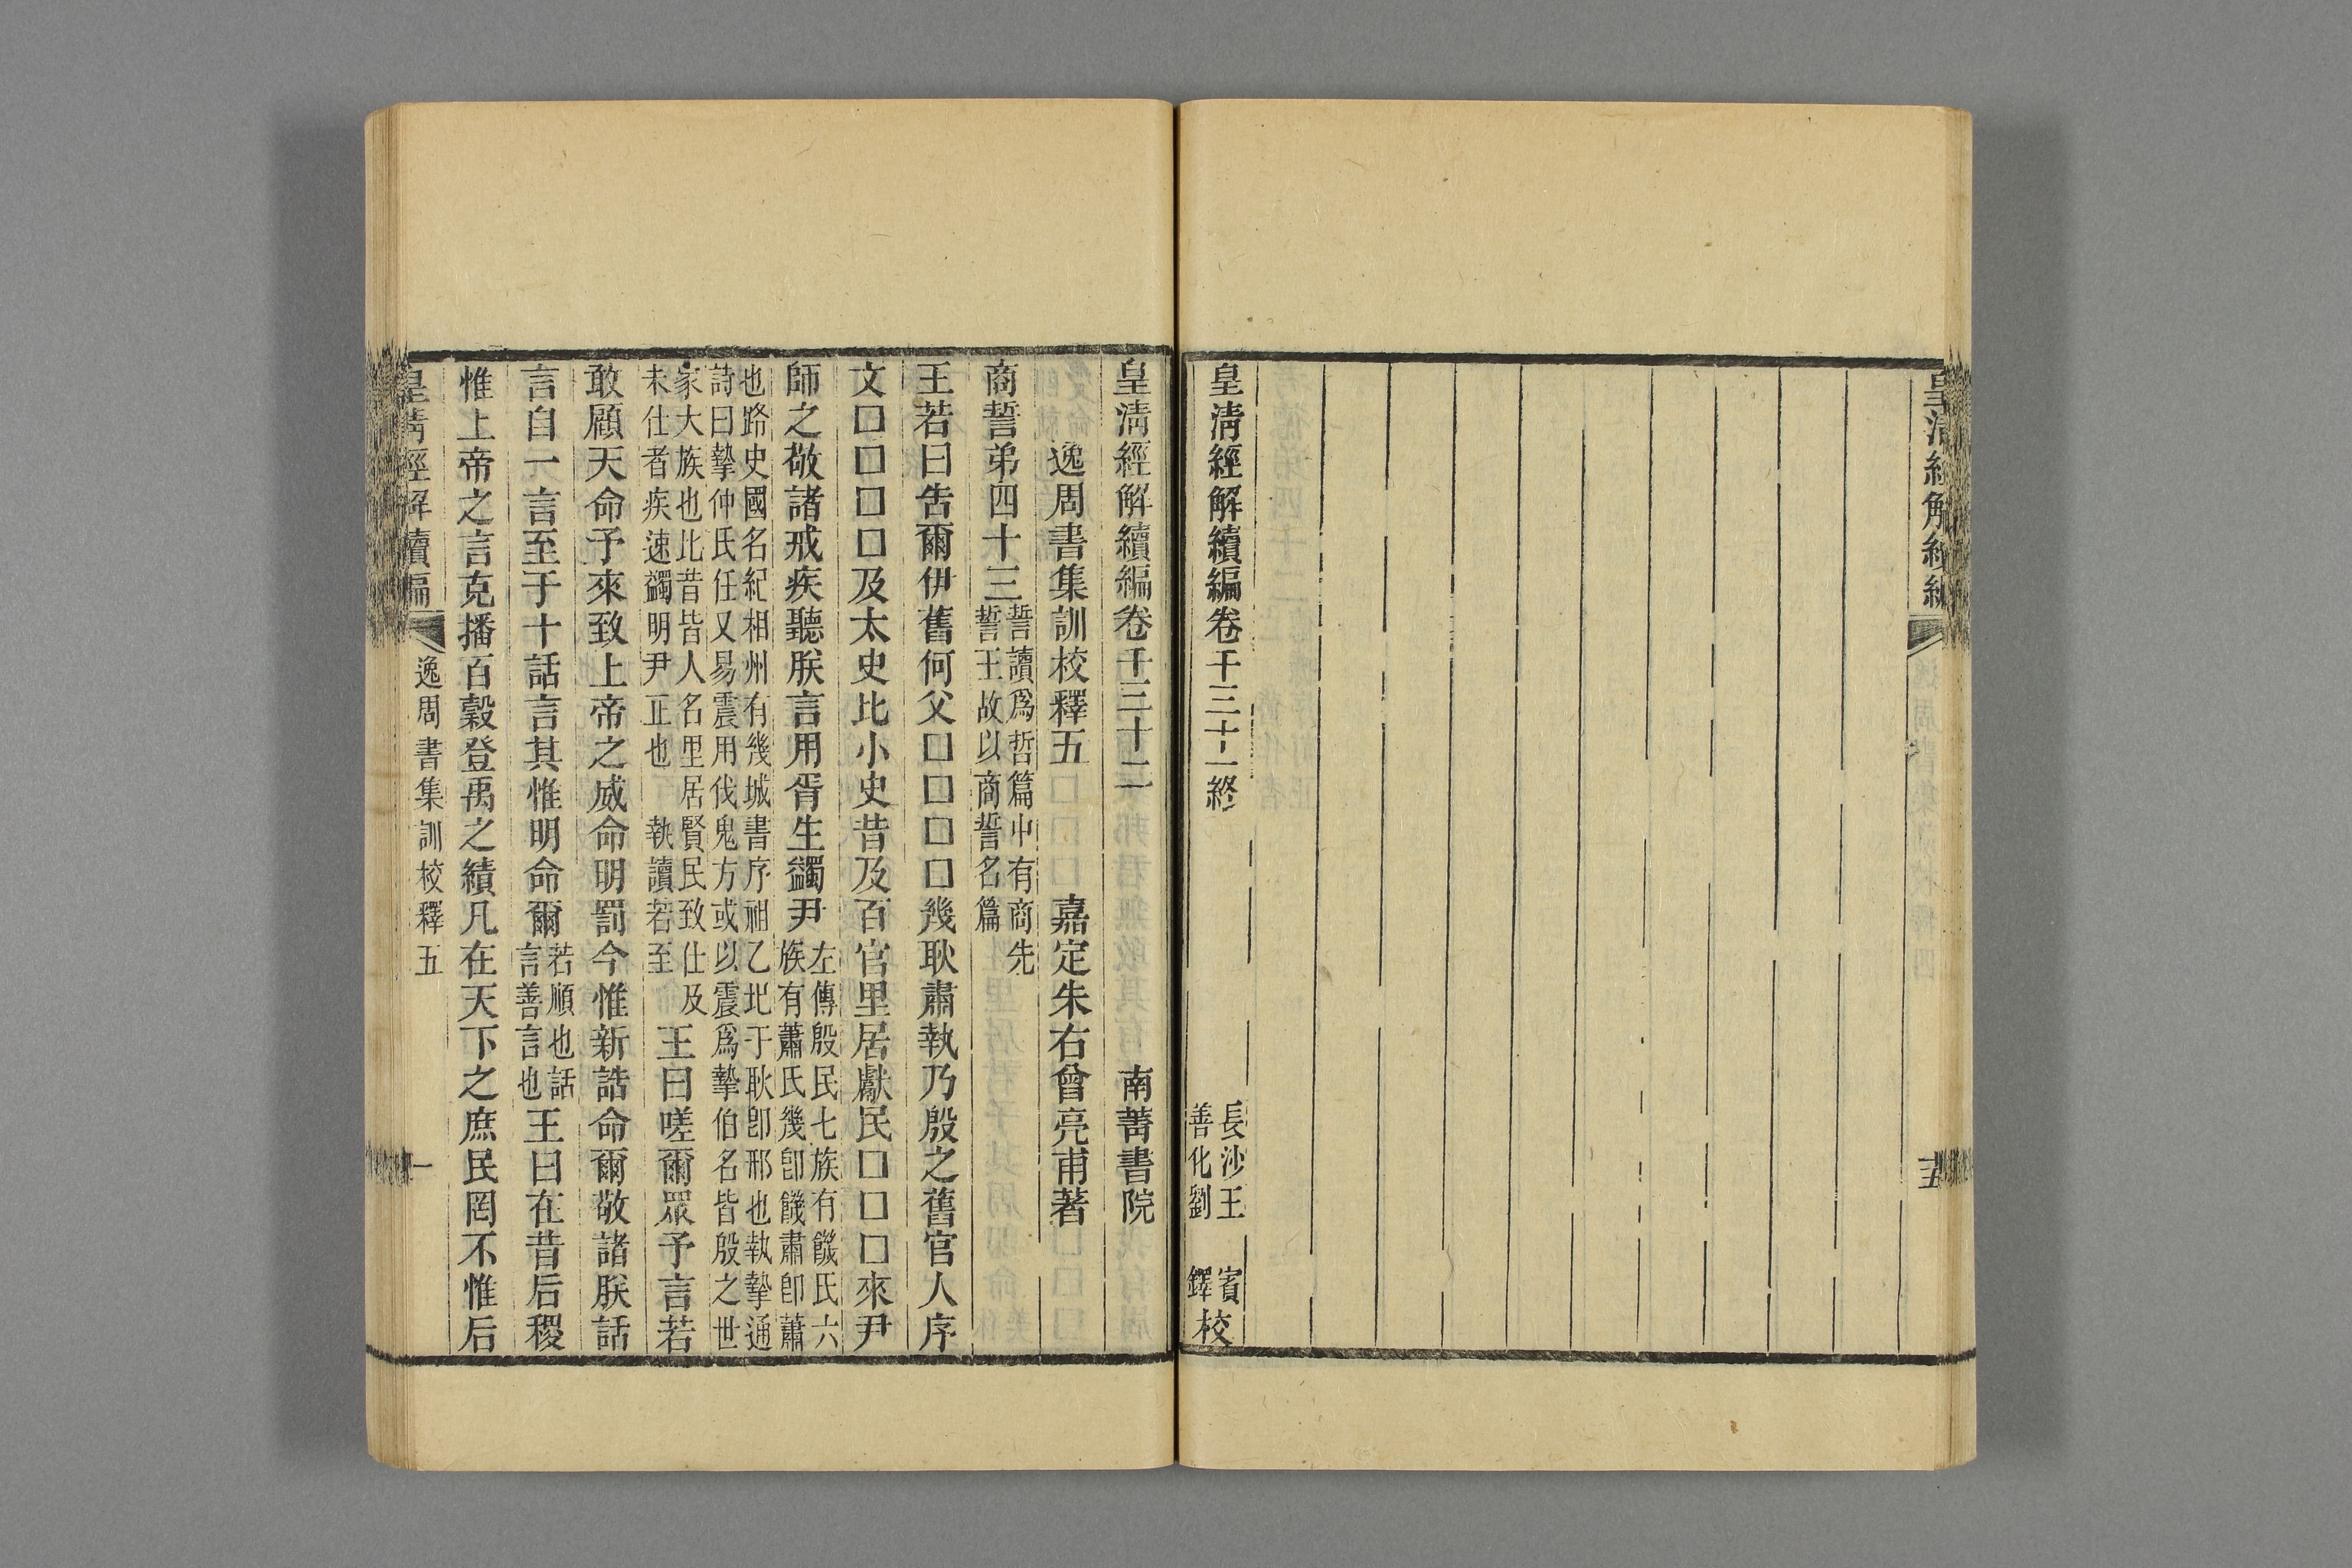 皇清經解續編卷千三十一終
長沙王 賓
善化劉 鐸 校
皇清經解續編卷千三十二 南菁書院
逸周書集訓校釋五 嘉定朱右曾亮甫著
商誓弟四十三 誓讀爲哲篇中有商先
誓王故以商誓名篇
王若曰告爾伊舊何父□□□□幾耿肅執乃殷之舊官人序
文□□□□及太史比小史昔及百官里居獻民□□□來尹
師之敬諸戒疾聽朕言用胥生蠲尹 左傳殷民七族有饑氏六
族有蕭氏幾卽饑肅卽蕭
也路史國名紀相州有幾城書序祖乙圯于耿卽邢也執摯通
詩曰摯仲氏任又易震用伐鬼方或以震爲摯伯名皆殷之世
家大族也比昔皆人名里居賢民致仕及
未仕者疾速蠲明尹正也 執讀若至 王曰嗟爾眾予言若
敢顧天命予來致上帝之威命明罰今惟新誥命爾敬諸朕話
言自一言至于十話言其惟明命爾 若順也話
言善言也 王曰在昔后稷
惟上帝之言克播百穀登禹之績凡在天下之庶民罔不惟后
皇清經解續編 逸周書集訓校釋五 一